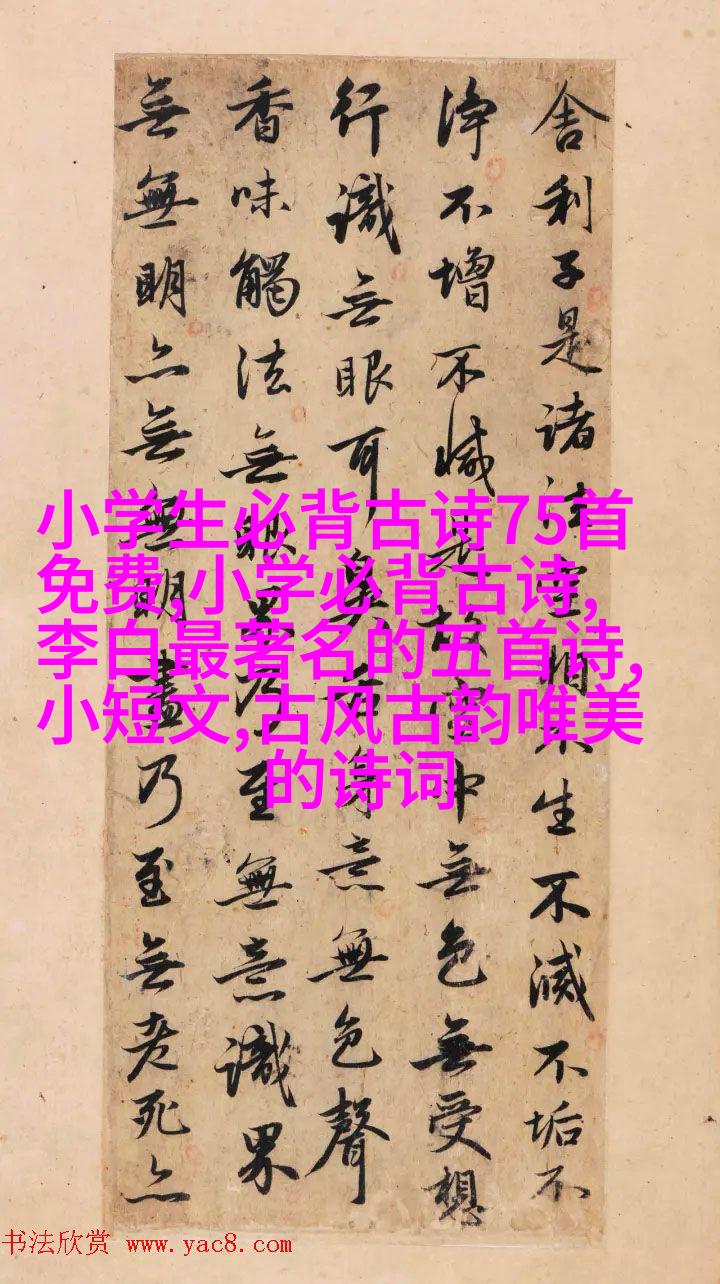 舍利子是諸法空相不生不滅不垢不
淨不增不減是故空中無色無受想
行識無眼耳鼻舌身意無色聲
香味觸法無眼界乃至無意識界
無無明亦無無明盡乃至無老死亦
小学生必背古诗75首
免费,小学必背古诗,
李白最著名的五首诗,
小短文,古风古韵唯美
的诗词
书法欣赏 www.yac8.com